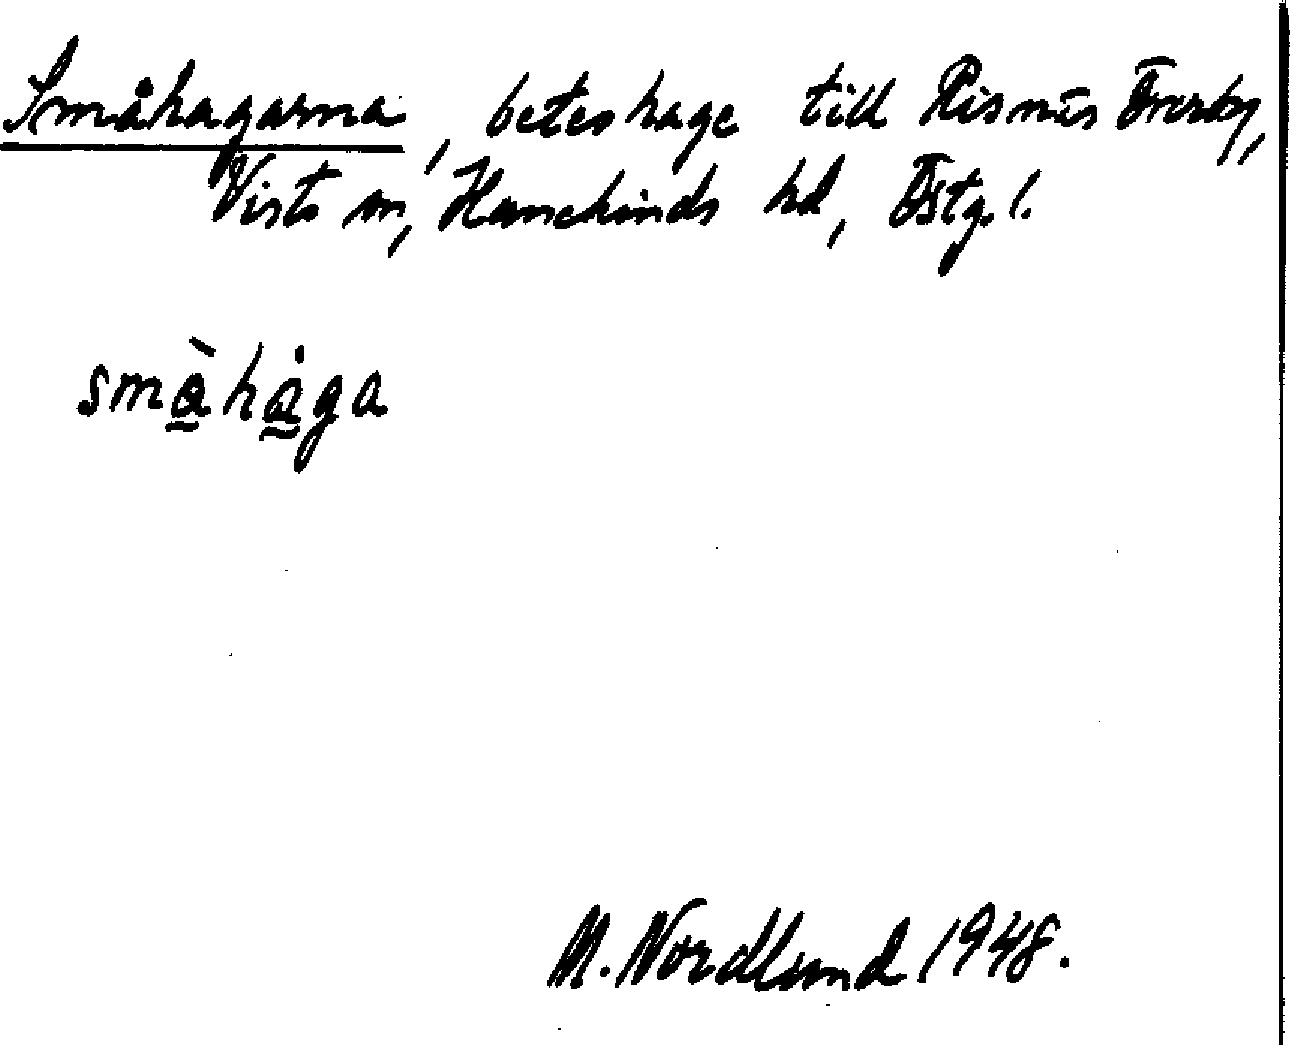 Småhagarna, beteshage till Risnäs Överby,
Vists sn, Hanekinds hd, Östg. l.
småhåga
M. Nordlund 1948.